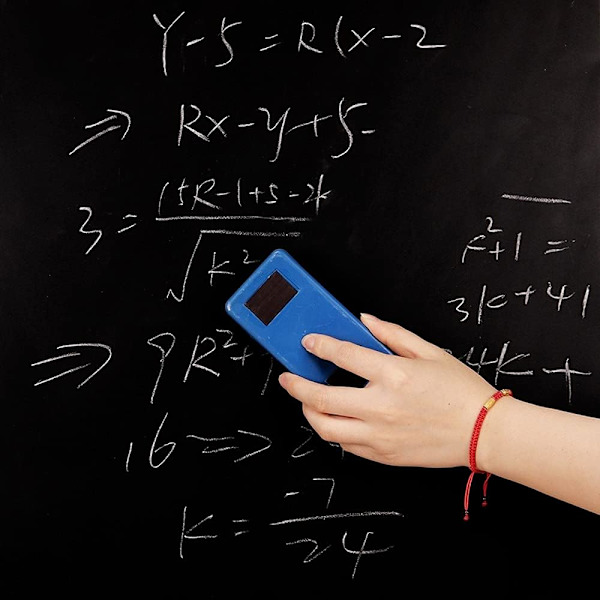 Y-5=R(x-2
⇒ Rx-y+5-
3 = (5R-1+5-2k
√k²
k²+1 =
3k+41
⇒ 9R²+ 4k+
16 ⇒ 2
K = -7
24